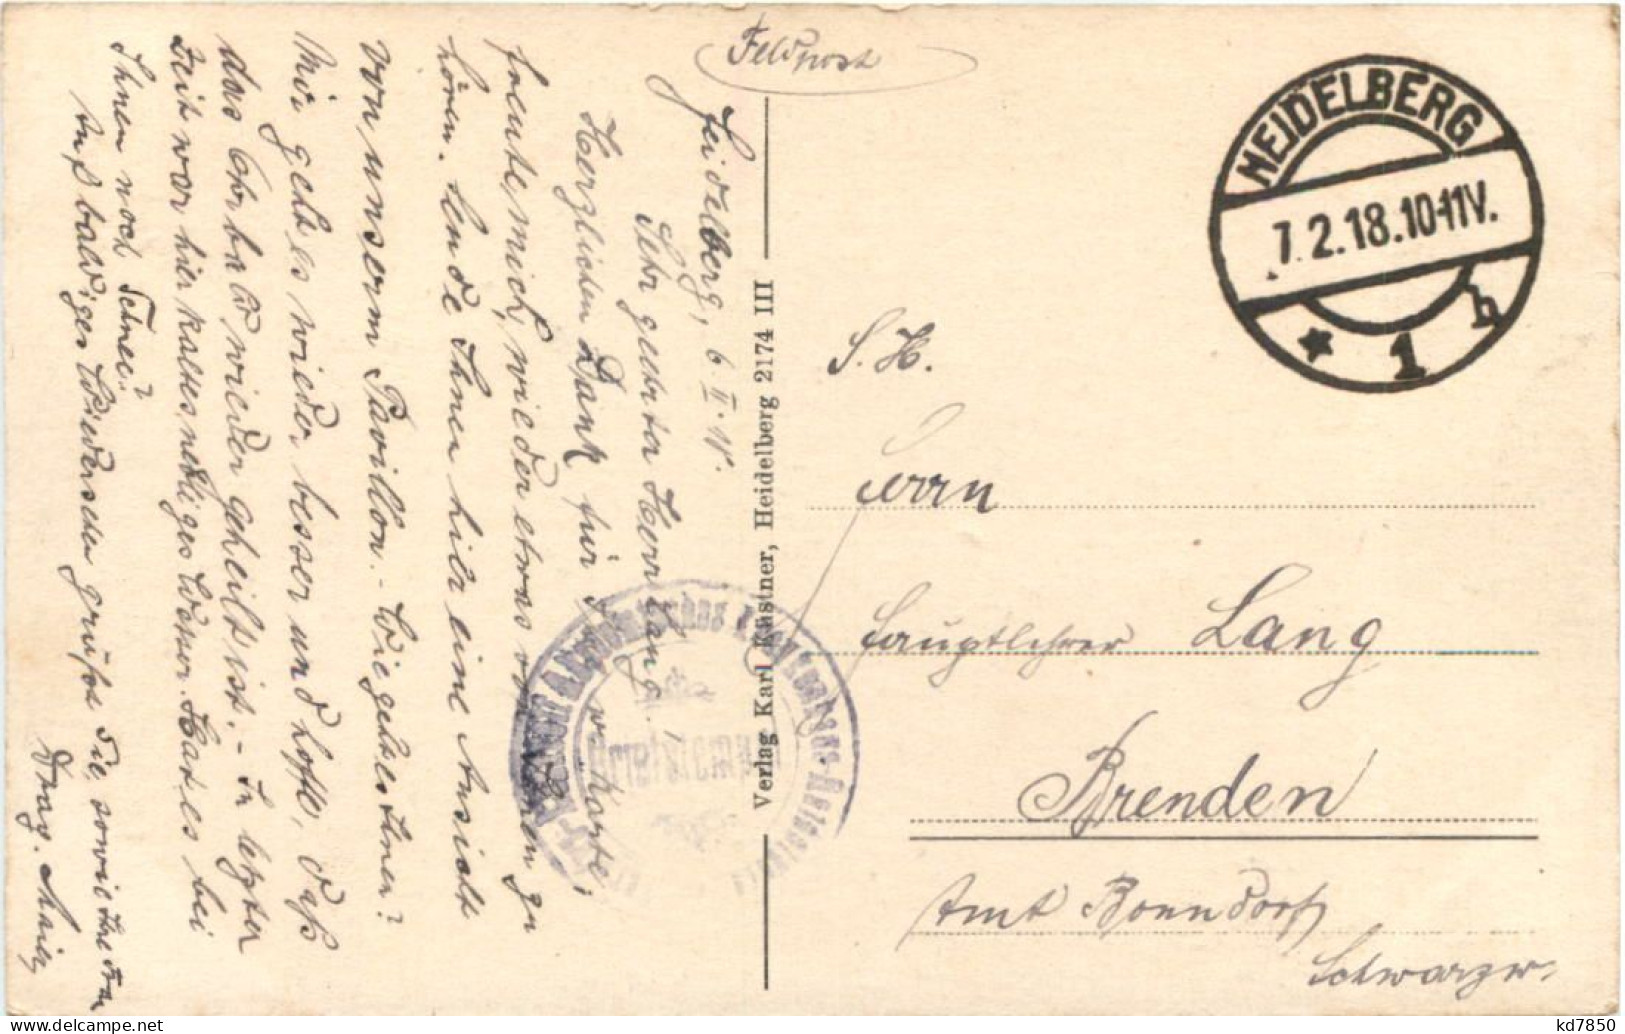 Feldpost
Heidelberg, 6. II. 18.
Sehr geehrter Herr Lang!
Herzlichen Dank für Ihre w. Karte,
freute mich, wieder etwas von Ihnen zu
hören. Sende Ihnen hier eine Ansicht
von unserm Pavillon. - Wie geht es Ihnen?
Mir geht es wieder besser und hoffe, daß
das Ohr bald wieder geheilt ist. - In letzter
Zeit war hier kaltes, nebliges Wetter. Hat es bei
Ihnen noch Schnee?
Auf baldiges Wiedersehen grüßt Sie sowie Ihre Frau
Drag. Maier
Verlag Karl Kästner, Heidelberg 2174 III
Briefstempel
HEIDELBERG
7.2.18.10-11V.
* 1 h
S. H.
Herrn
Hauptlehrer Lang
Brenden
Amt Bonndorf
Schwarzw.
delcampe.net
kd7850